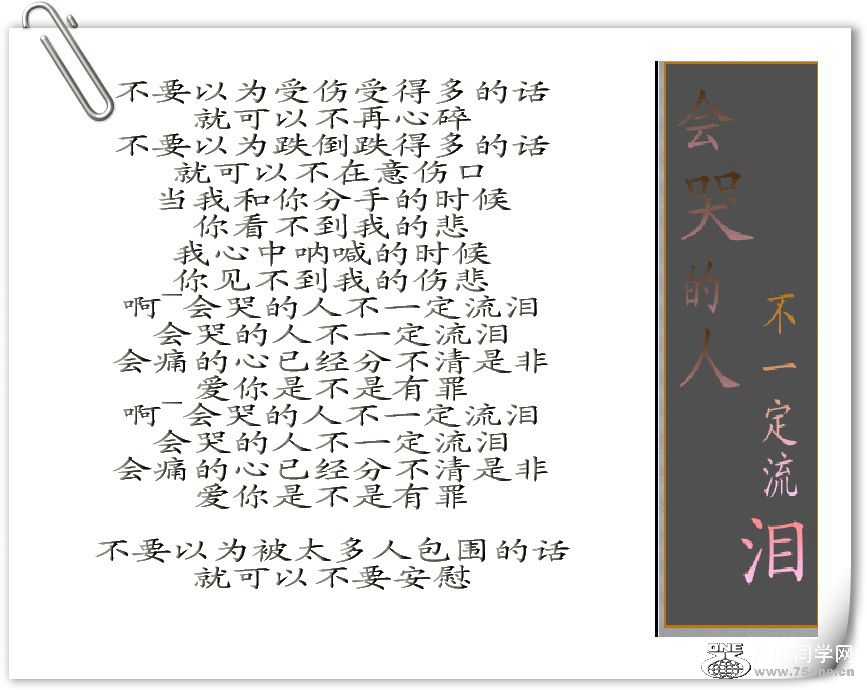 不要以为受伤受得多的话
就可以不再心碎
不要以为跌倒跌得多的话
就可以不在意伤口
当我和你分手的时候
你看不到我的悲
我心中呐喊的时候
你见不到我的伤悲
啊¯会哭的人不一定流泪
会哭的人不一定流泪
会痛的心已经分不清是非
爱你是不是有罪
啊¯会哭的人不一定流泪
会哭的人不一定流泪
会痛的心已经分不清是非
爱你是不是有罪
不要以为被太多人包围的话
就可以不要安慰
会哭的人
不一定流泪
ONE
同学网
www.75one.cn